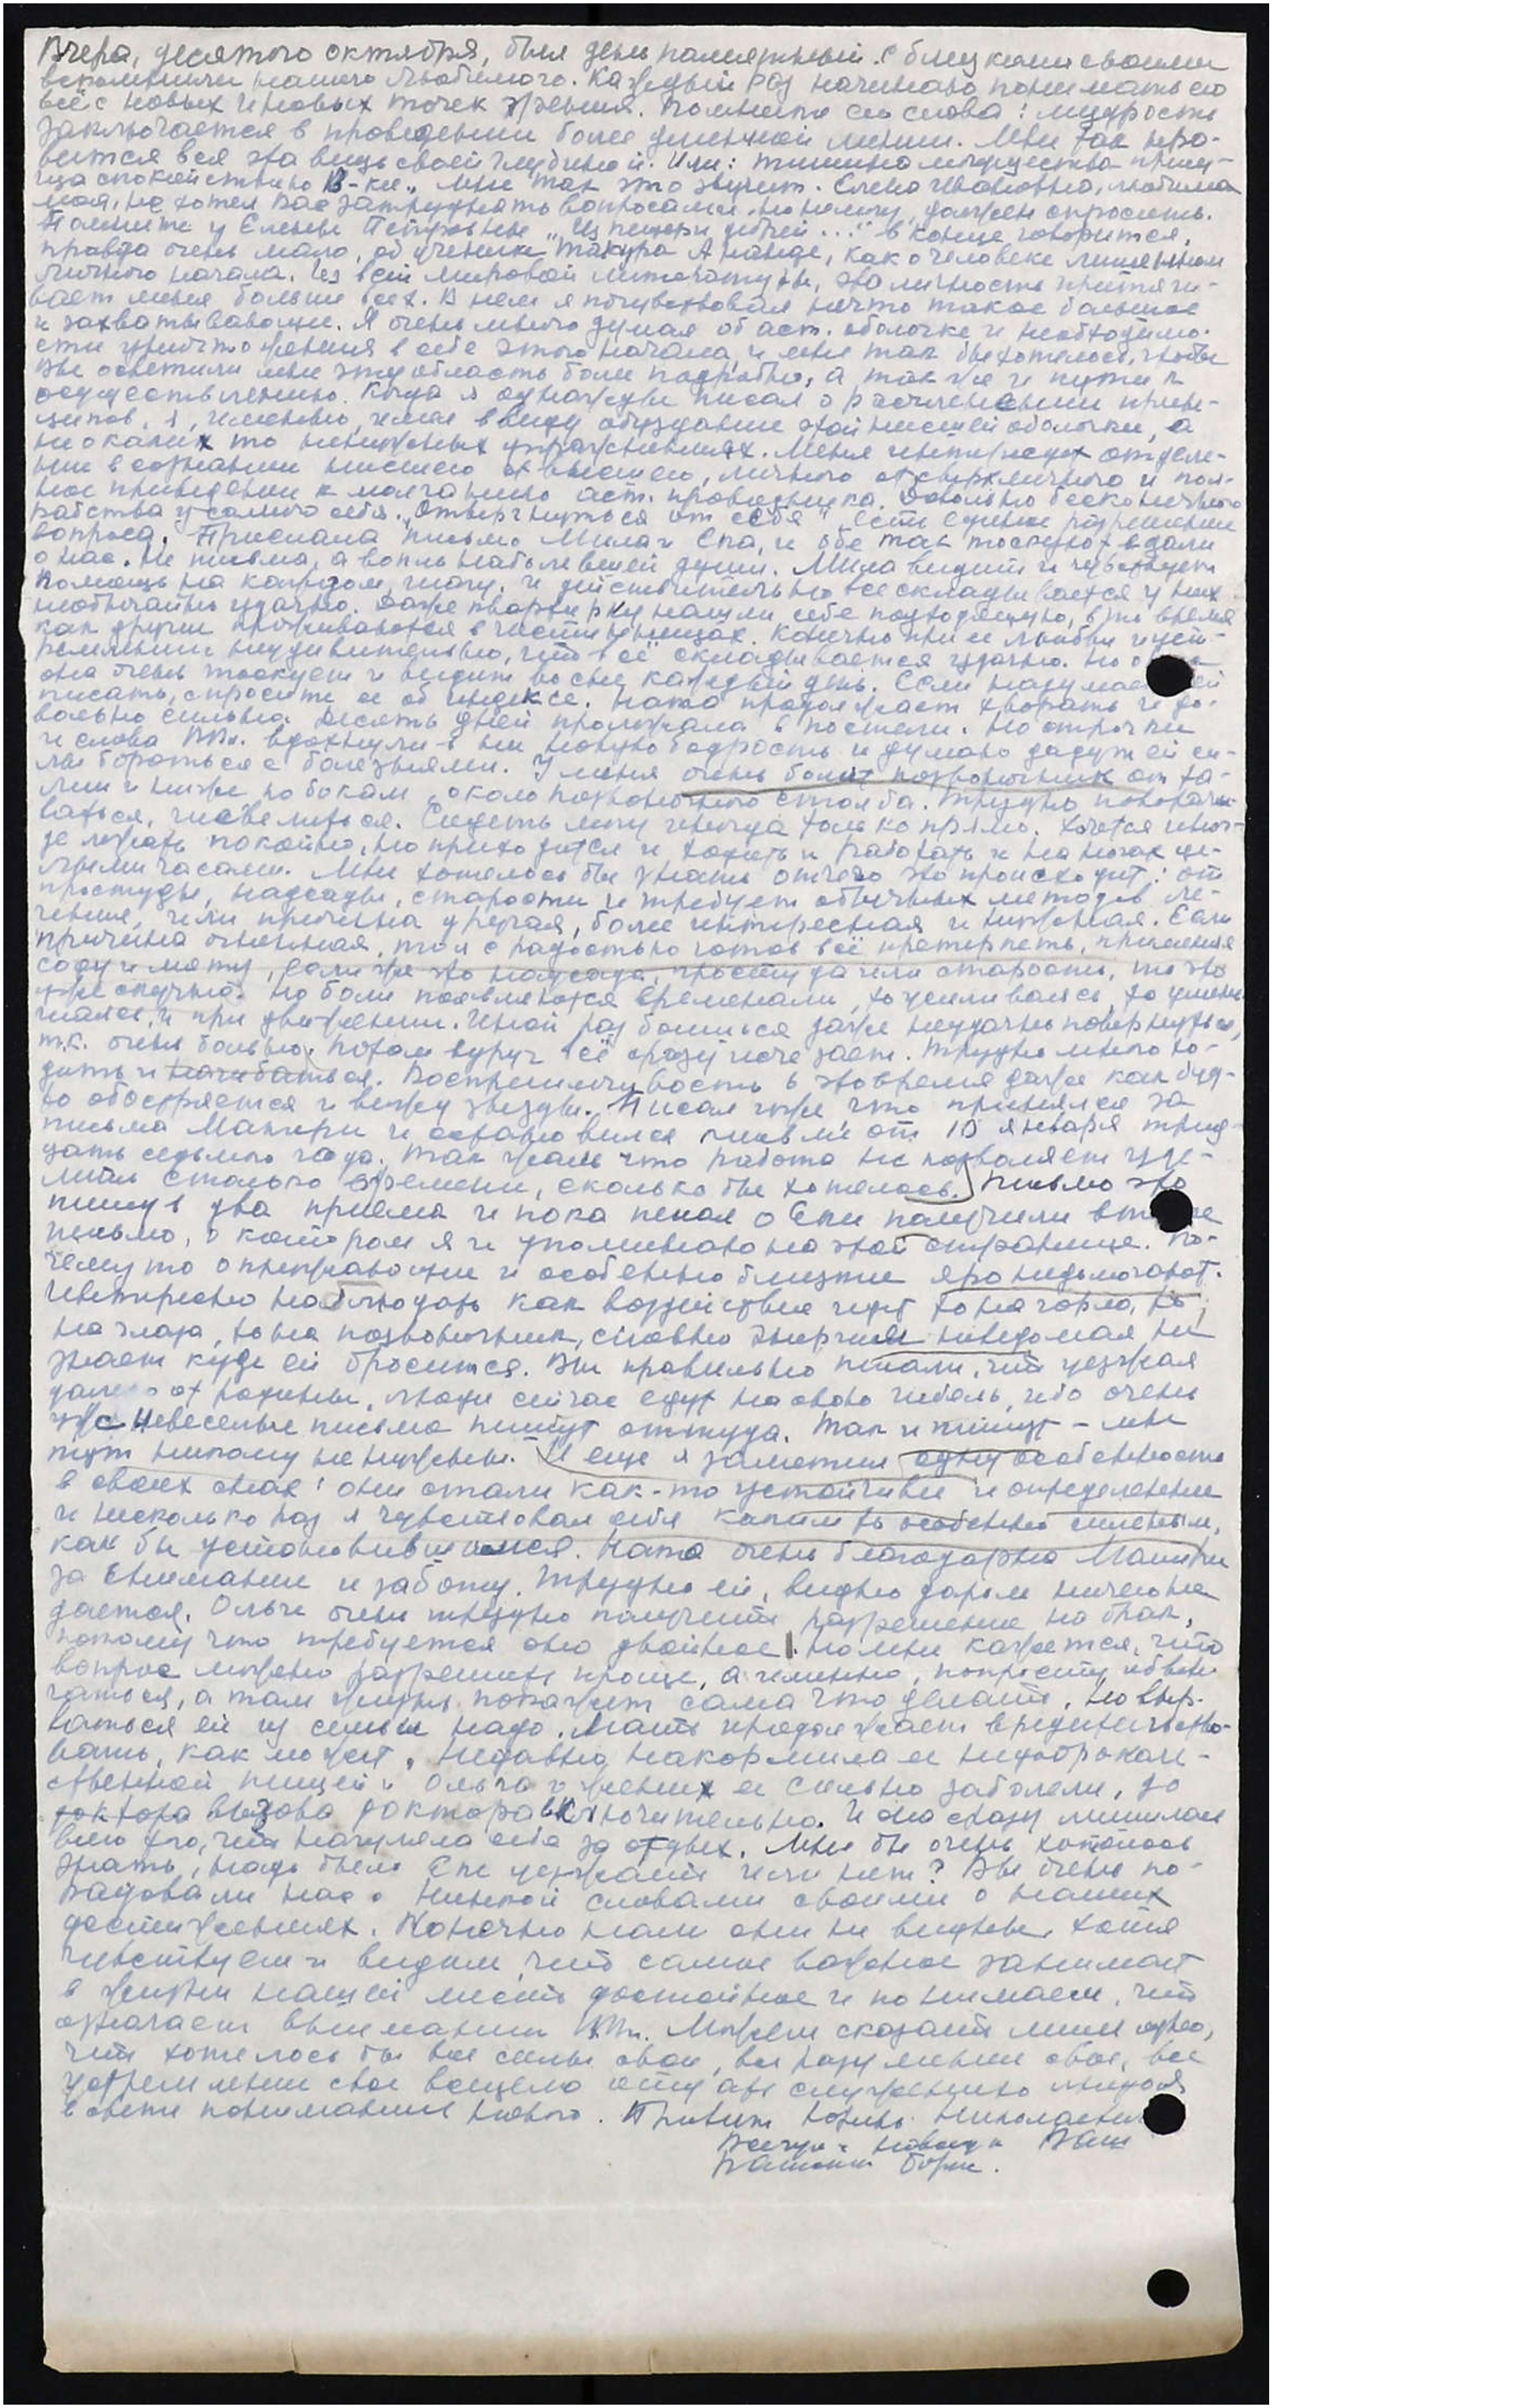 Вчера, десятого октября, был день памятный. С близкими своими
вспоминали нашего любимого. Каждый раз начинаю понимать его
всё с новых и новых точек зрения. Помните его слова: мудрость
заключается в проведении более длинной линии. Мне так нра-
вится вся эта вещь своей глубиной. Или: тишина могущества
спокойствию В-ки. Мне так это звучит. Елена Ивановна, любимая
моя, не хотел Вас затруднять вопросами, но не могу, должен спросить.
Помните у Елены Петровны „Из пещер и дебрей..." в конце говорится,
правда очень мало, об ученике Такура Ананде, как о человеке лишенном
личного начала. Из всей мировой литературы, эта личность притяги-
вает меня больше всех. В нем я почувствовал нечто такое большое
и захватывающее. Я очень много думал об аст. оболочке и необходимо-
сти уничтожения в себе этого начала, и мне так бы хотелось, чтобы
Вы осветили мне эту область более подробно, а так же и пути к
осуществлению. Когда я однажды писал о расчленении прин-
ципов, я, именно, имел в виду обуздание этой низшей оболочки, а
не о каких то ненужных упражнениях. Меня интересует отделе-
ние в сознании низшего от высшего, личного от сверхличного и пол-
ное приведение к молчанию аст. проводника. Довольно бесконечного
рабства у самого себя. „Отвергнуться от себя" есть единое разрешение
вопроса. Прислали письмо Мила и Ека, и обе так тоскуют вдали
о нас. Не письма, а вопль наболевшей души. Мила видит и чувствует
помощь на каждом шагу, и действительно всё складывается у них
необычайно удачно. Даже квартирку нашли себе подходящую, в то время
как другие проживаются в гостинницах. Конечно при ее любви и уст-
ремлении неудивительно, что всё складывается удачно. Но
она очень тоскует и видит во сне каждый день. Если надумаете ей
писать, спросите ее об индексе. Ната продолжает хворать и до-
вольно сильно. Десять дней пролежала в постели. Но строчки
и слова ВВл. вдохнули в нее новую бодрость и думаю дадут ей си-
лы бороться с болезнями. У меня очень болит позвоночник от та-
лии и ниже по бокам, около позвоночного столба. Трудно поворачи-
ваться, шевелиться. Сидеть могу иногда только прямо. Хочется иног-
да лежать покойно, но приходится и ходить и работать и на ногах це-
лыми часами. Мне хотелось бы узнать отчего это происходит: от
простуды, надсады, старости и требует обычных методов ле-
чения, или причина другая, более интересная и нужная. Если
причина огненная, то я с радостью готов всё претерпеть, применяя
соду и мяту, если же это надсада, простуда или старость, то это
уже скучно. Но боли появляются временами, то усиливаясь, то умень-
шаясь, и при движении. Иной раз боишься даже неудачно повернуться,
т.к. очень больно. Потом вдруг всё сразу исчезает. Трудно много хо-
дить и нагибаться. Восприимчивость в это время даже как буд-
то обостряется и вижу звезды. Писал уже что принялся за
письма Матери и остановился письме от 10 января трид-
цать седьмого года. Так жаль что работа не позволяет уде-
лить столько времени, сколько бы хотелось. Письмо это
пишу в два приема и пока писал о Еки получили второе
письмо, о котором я и упоминаю на этой странице. По-
чему то окружающие и особенно близкие яро недомогают.
Интересно наблюдать как воздействия идут то на горло, то
на глаза, то на позвоночник, словно энергия неведомая не
знает куда ей броситься. Вы правильно писали, что уезжая
далеко от родины, люди сейчас едут на свою гибель, ибо очень
уж невеселые письма пишут оттуда. Так и пишут – мы
тут никому не нужны. И еще я заметил одну особенность
в своих снах: они стали как-то устойчивее и определеннее
и несколько раз я чувствовал себя каким то особенно сильным,
как бы установившимся. Ната очень благодарна Матери
за внимание и заботу. Трудно ей, видно даром ничего не
дается. Ольге очень трудно получить разрешение на брак,
потому что требуется оно двойное. Но мне кажется, что
вопрос можно разрешить проще, а именно, попросту, обвен-
чаться, а там жизнь покажет сама что делать. Но выр-
ваться ей из семьи надо. Мать продолжает вредительство-
вать, как может. Недавно накормила ее недоброкаче-
ственной пищей и Ольга и жених ее сильно заболели, до
доктора вызова доктора включительно. И она сразу лишилась
всего того, что нагуляла себе за отдых. Мне бы очень хотелось
знать, надо было Еке уезжать или нет? Вы очень по-
радовали нас с Ниной словами своими о наших
достижениях. Конечно нам они не видны, хотя
чувствуем и видим, что самое важное занимает
в жизни нашей место достойное и понимаем, что
означает внимание ВВл. Можем сказать лишь одно,
что хотелось бы все силы свои, все разумение свое, все
устремление свое всецело отдать служению людям
в свете понимания нового. Привет Юрию Николаевичу.
Всегда и навсегда Ваш
Вашим Борис.